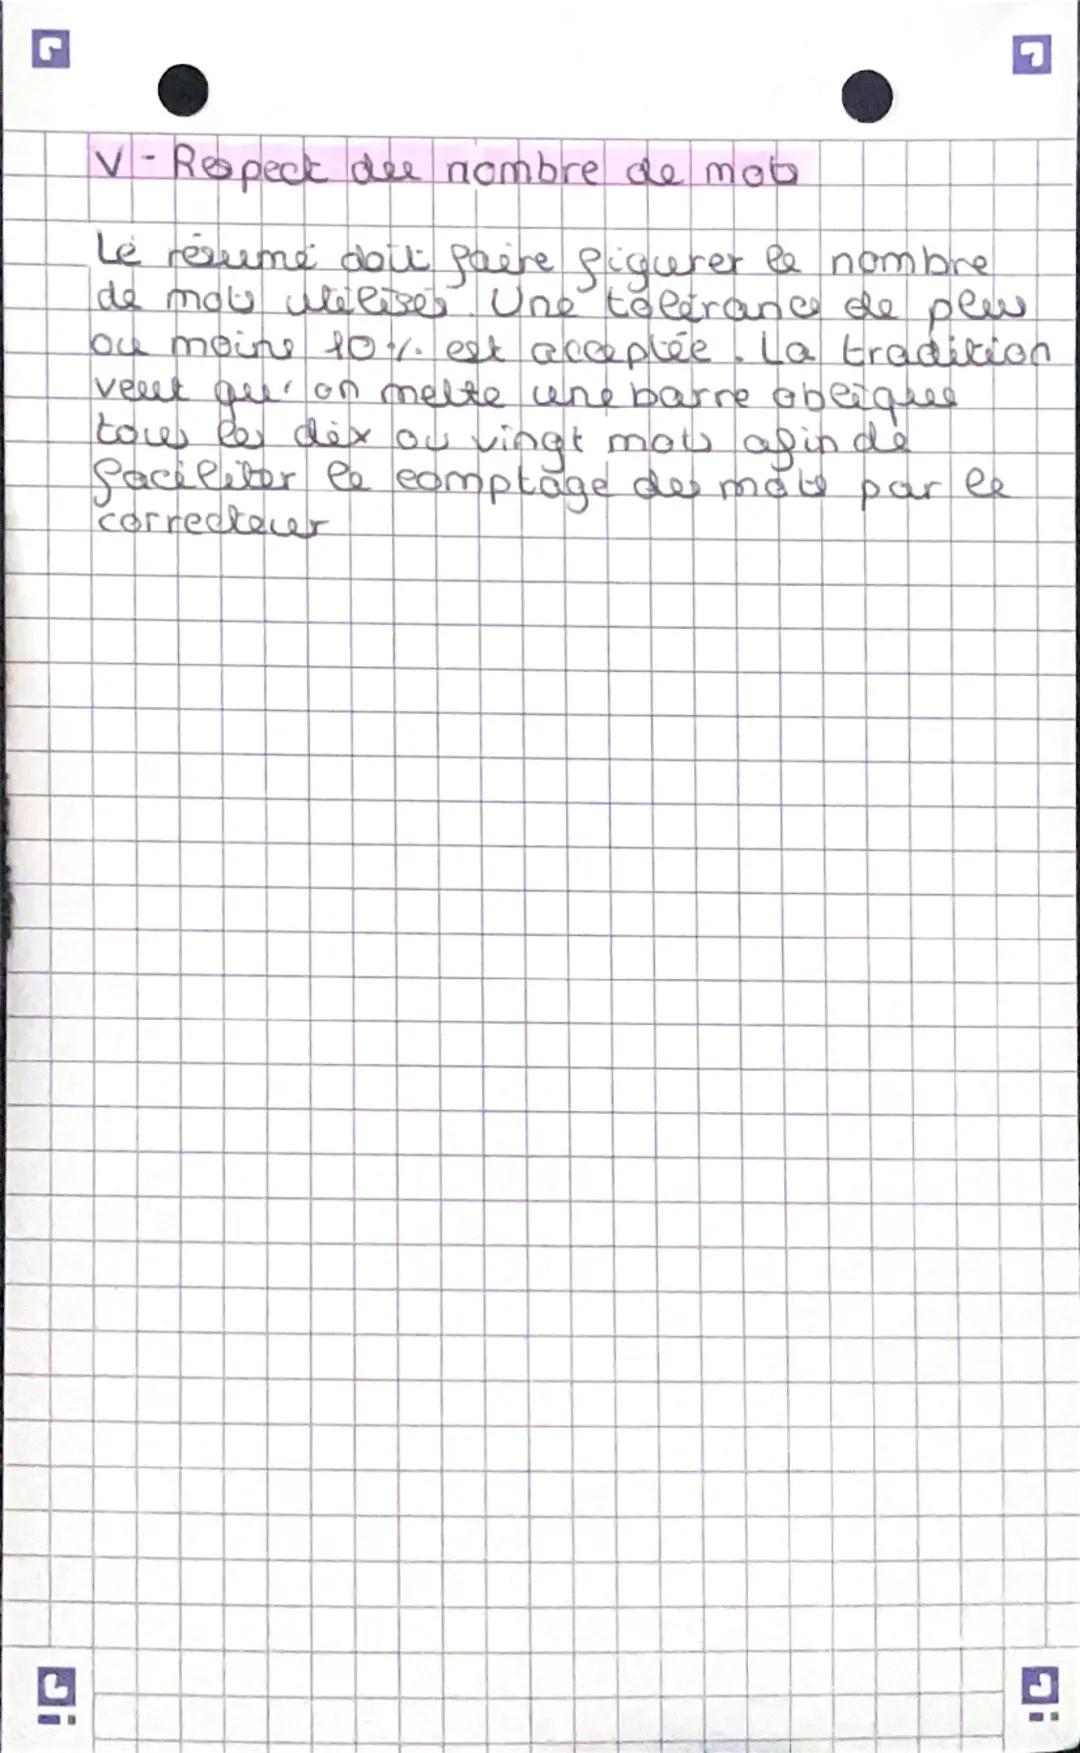 V - Respect du nombre de mots
Le résumé doit faire figurer le nombre
de mots utilisés. Une tolérance de plus
ou moins 10 % est acceptée. La tradition
veut qu'on mette une barre oblique
tous les dix ou vingt mots afin de
faciliter le comptage des mots par le
correcteur